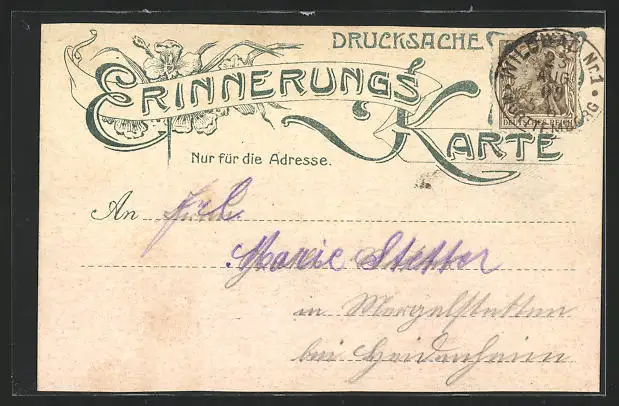 DRUCKSACHE
ERINNERUNGS
KARTE
DEUTSCHES REICH
23
AUG
09
Nur für die Adresse.
An Frl.
Marie Stetter
in Mergelstetten
bei Heidenheim